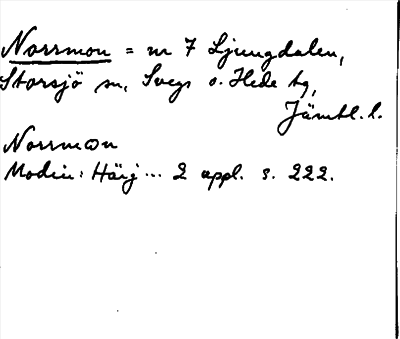 Norrmon = m 7 Ljungdalen,
Storsjö sn, Svegs o. Hede tg,
Jämtl. l.
Norrmon
Modin: Härj... 2 uppl. s. 222.